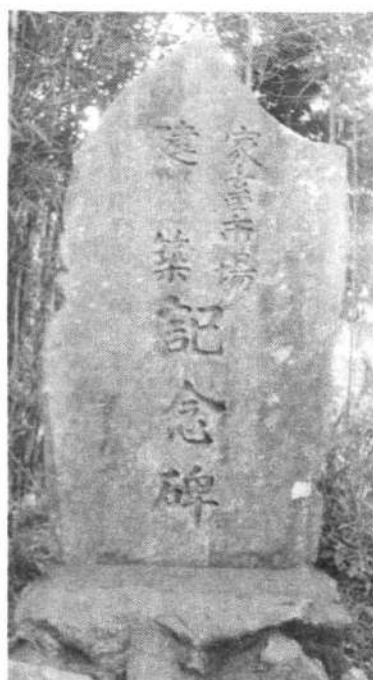 家畜市場
建築記念碑